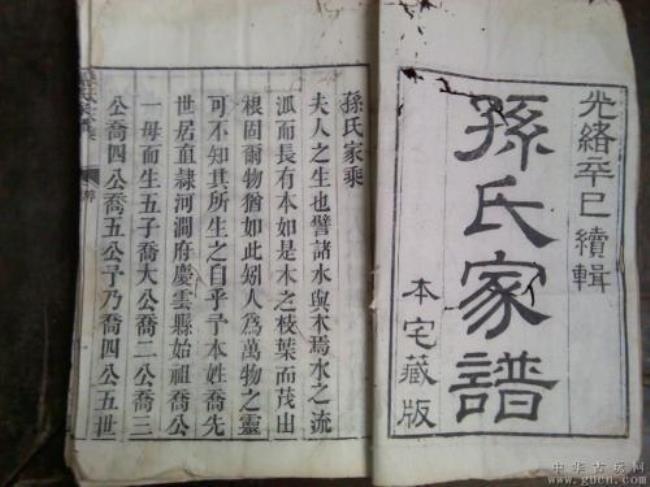 光緒辛巳續輯
孫氏家譜
本宅藏版
孫氏家乘
夫人之生也譬諸水與木焉水之流
派而長有本如是木之枝葉而茂出
根固爾物猶如此矧人爲萬物之靈
可不知其所生之自乎予本姓喬先
世居直隸河澗府慶雲縣始祖喬公
一母而生五子喬大公喬二公喬三
公喬四公喬五公予乃喬四公五世
中华古玩网
www.gucn.com